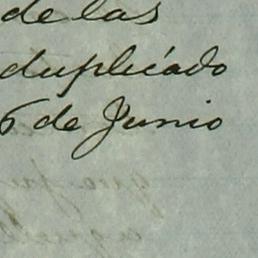 de las
duplicado
6 de Junio